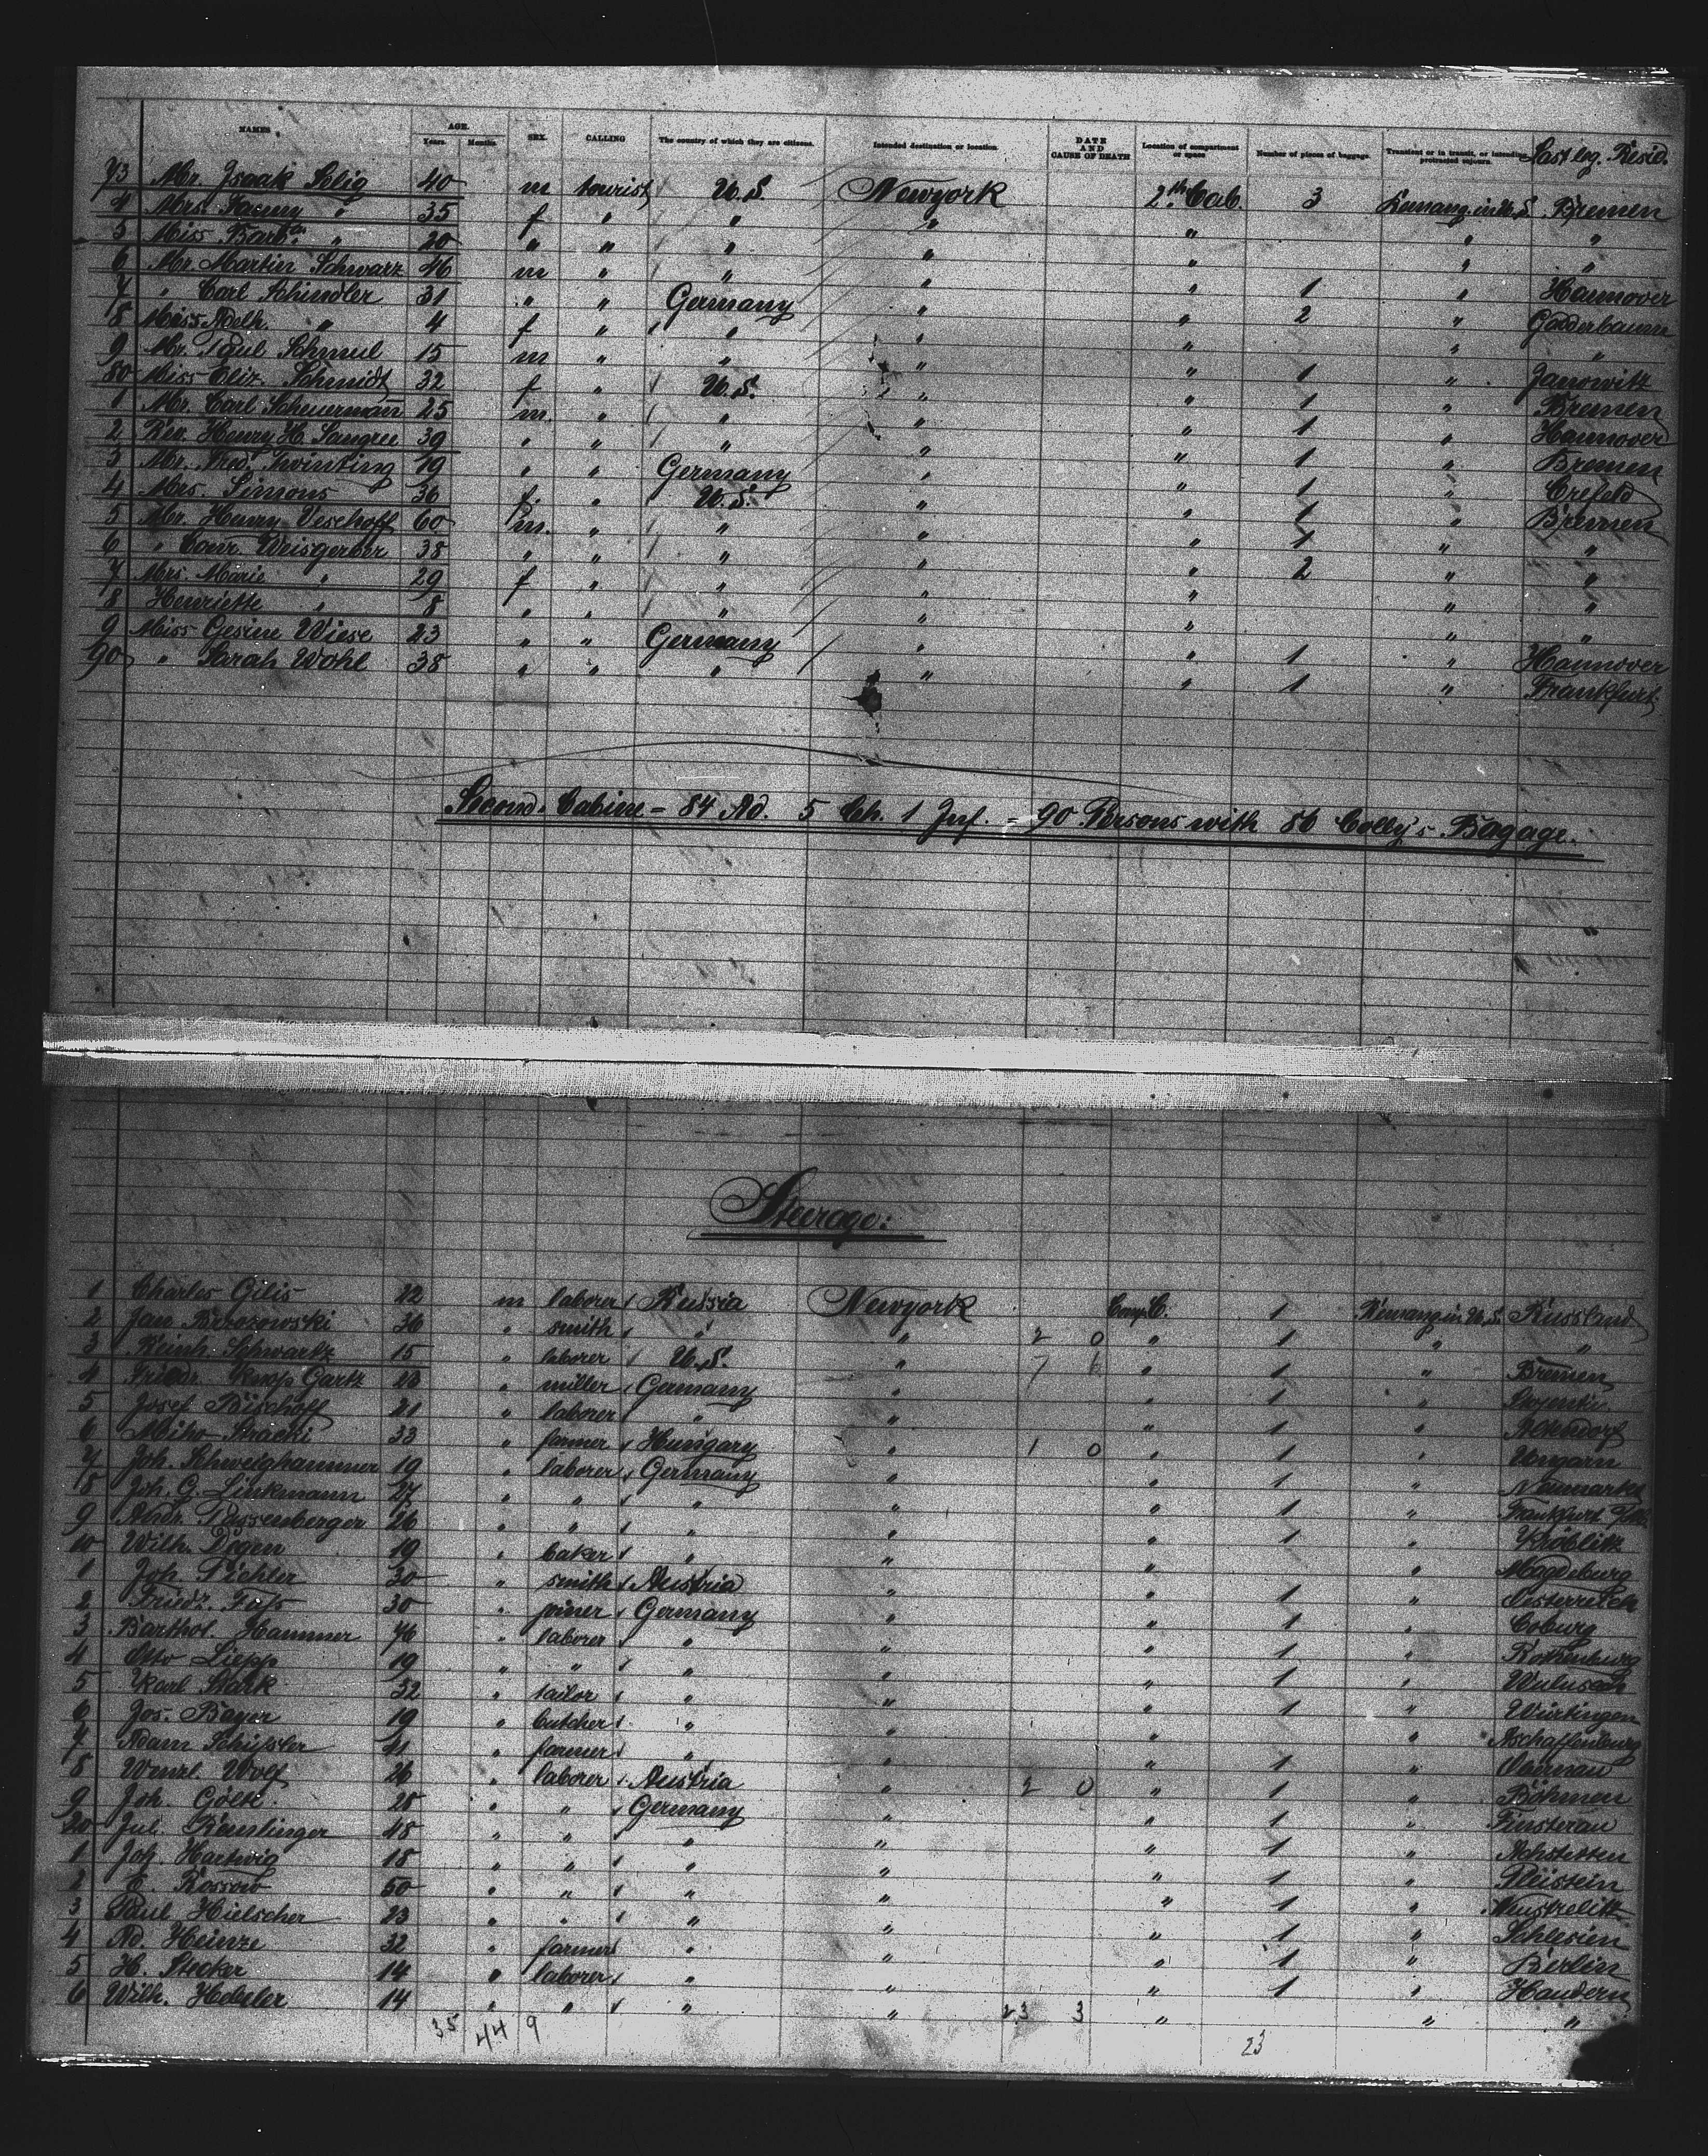 NAMES AGE. Years. Months. SEX. CALLING The country of which they are citizens. Intended destination or location. DATE AND CAUSE OF DEATH Location of compartment or space Number of pieces of baggage. Transient or in transit, or intending protracted sojourn. Last leg. Resid.
73 Mr. Isaak Selig 40 m tourist U.S. Newyork 2th Cab. 3 in U.S. Bremen
4 Mrs. Fanny " 35 f " " " " " "
5 Miss Barb. " 20 " " " " " " "
6 Mr. Martin Schwarz 46 m " " " " 1 " Hannover
7 " Carl Schindler 31 " " Germany " " 2 " Gadderbaum
8 Miss Adelh. " 4 f " " " " " "
9 Mr. Paul Schmul 15 m " " " " 1 " Janowitz
80 Miss Eliz. Schmidt 32 f " U.S. " " 1 " Bremen
1 Mr. Carl Scheuermann 25 m. " " " " 1 " Hannover
2 Rev. Henry H. Sangree 39 " " " " " 1 " Bremen
3 Mr. Fred. 19 " " Germany " " 1 " Crefeld
4 Mrs. Simons 36 f. " U.S. " " 1 " Bremen
5 Mr. Henry Veschoff 60 m. " " " " 1 " "
6 " Conr. Weisgerber 38 " " " " " 2 " "
7 Mrs. Marie " 29 f " " " " " "
8 Henriette " 8 " " " " " " "
9 Miss Gesine Wiese 23 " " Germany " " 1 " Hannover
90 " Sarah Wohl 38 " " " " " 1 " Frankfurt
Second Cabine = 84 Ad. 5 Ch. 1 Inf. = 90 Persons with 86 Colly's Bagage.
Steerage:
1 Charles Gilis 22 m laborer Russia Newyork Comp C. 1 in U.S. Russland
2 Jan Brzozowski 30 " smith " " 2 0 " 1 " "
3 Reinh. Schwartz 15 " laborer U.S. " 7 " 1 " Bremen
4 Friedr. Knop Gartz " miller Germany " " 1 "
5 Josef Bischoff 21 " laborer " " " 1 " Altendorf
6 Miho 33 " farmer Hungary " 1 0 " 1 " Ungarn
7 Joh. Schweighammer 19 " laborer Germany " " 1 " Neumarkt
8 Joh. G. Linkmann 27 " " " " " 1 " Frankfurt
9 Andr. Passenberger 26 " " " " " 1 " Kröblitz
10 Wilh. Degen 19 " baker " " " " Magdeburg
1 Joh. Pichler 30 " smith Austria " " 1 " Oesterreich
2 Friedr. 30 " joiner Germany " " 1 " Coburg
3 Barthol. Hammer 76 " laborer " " " 1 " Rothenburg
4 Otto Liepp 19 " " " " " 1 "
5 Karl Stark 32 " tailor " " " 1 "
6 Jos. Bayer 19 " butcher " " " Aschaffenburg
7 Adam Schüssler 41 " farmer " " " 1 " Obernau
8 Wenzl. Wolf 26 " laborer Austria " 2 0 " 1 " Böhmen
9 Joh. 28 " " Germany " " 1 " Finsterau
20 Jul. Reutlinger 48 " " " " " 1 " Achstetten
1 Joh. Hartwig 18 " " " " " 1 " Pleistein
2 E. Rossow 50 " " " " " 1 " Neustrelitz
3 Paul Hielscher 23 " " " " " 1 " Schlesien
4 Ad. Heinze 32 " farmer " " " 1 " Berlin
5 H. Stecker 14 " laborer " " " 1 " Haudern
6 Wilh. 14 " " " " 23 3 " " "
35 44 9 23